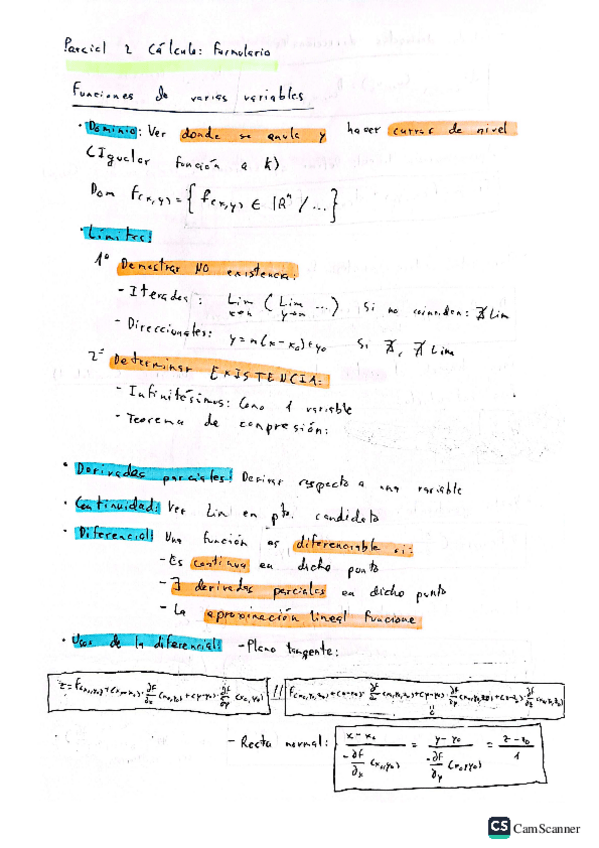 Parcial 2 Cálculo: Formulario
Funciones de varias variables
· Dominio: Ver donde se anula y hacer curvas de nivel
(Igualar función a k)
Dom f(x,y) = { f(x,y) ∈ |Rⁿ / ... }
· Limites:
1º Demostrar NO existencia:
- Iterados: Lim x→n ( Lim y→m ... ) Si no coinciden: ∄ Lim
- Direccionales: y = m(x-x₀)+y₀ Si ∄, ∄ Lim
2º Determinar EXISTENCIA:
- Infinitésimos: Como 1 variable
- Teorema de compresión:
· Derivadas parciales: Derivar respecto a una variable
· Continuidad: Ver Lim en pto. candidato
· Diferencial: Una función es diferenciable si:
- Es continua en dicho punto
- ∃ derivadas parciales en dicho punto
- La aproximación lineal funcione
· Usos de la diferencial: - Plano tangente:
z = f(x₀,y₀)+(x-x₀)·∂f/∂x (x₀,y₀)+(y-y₀)·∂f/∂y (x₀,y₀) // f(x₀,y₀,z₀)+(x-x₀)·∂f/∂x (x₀,y₀,z₀)+(y-y₀)·∂f/∂y (x₀,y₀,z₀)+(z-z₀)·∂f/∂z (x₀,y₀,z₀)
- Recta normal: x-x₀ / -∂f/∂x (x₀,y₀) = y-y₀ / -∂f/∂y (x₀,y₀) = z-z₀ / 1
CS CamScanner